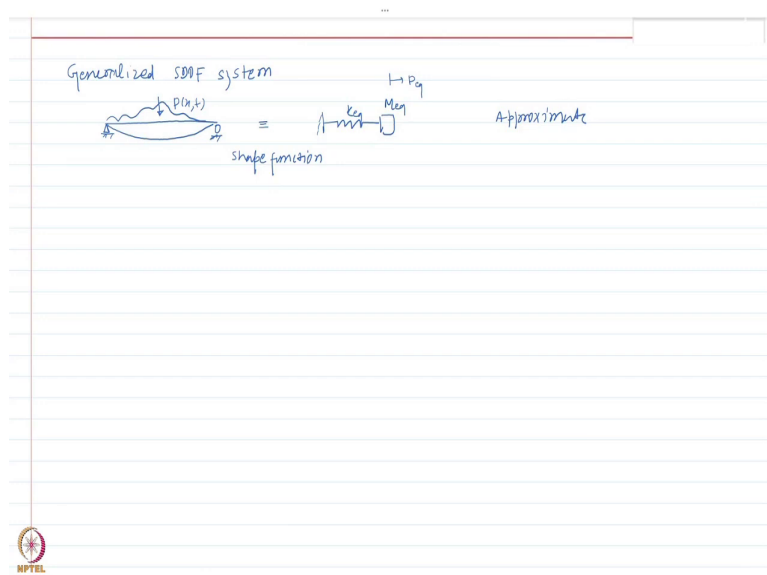 Generalized SDOF system
P(x,t)
≡
Keq
Meq
Peq
Approximate
shape function
NPTEL